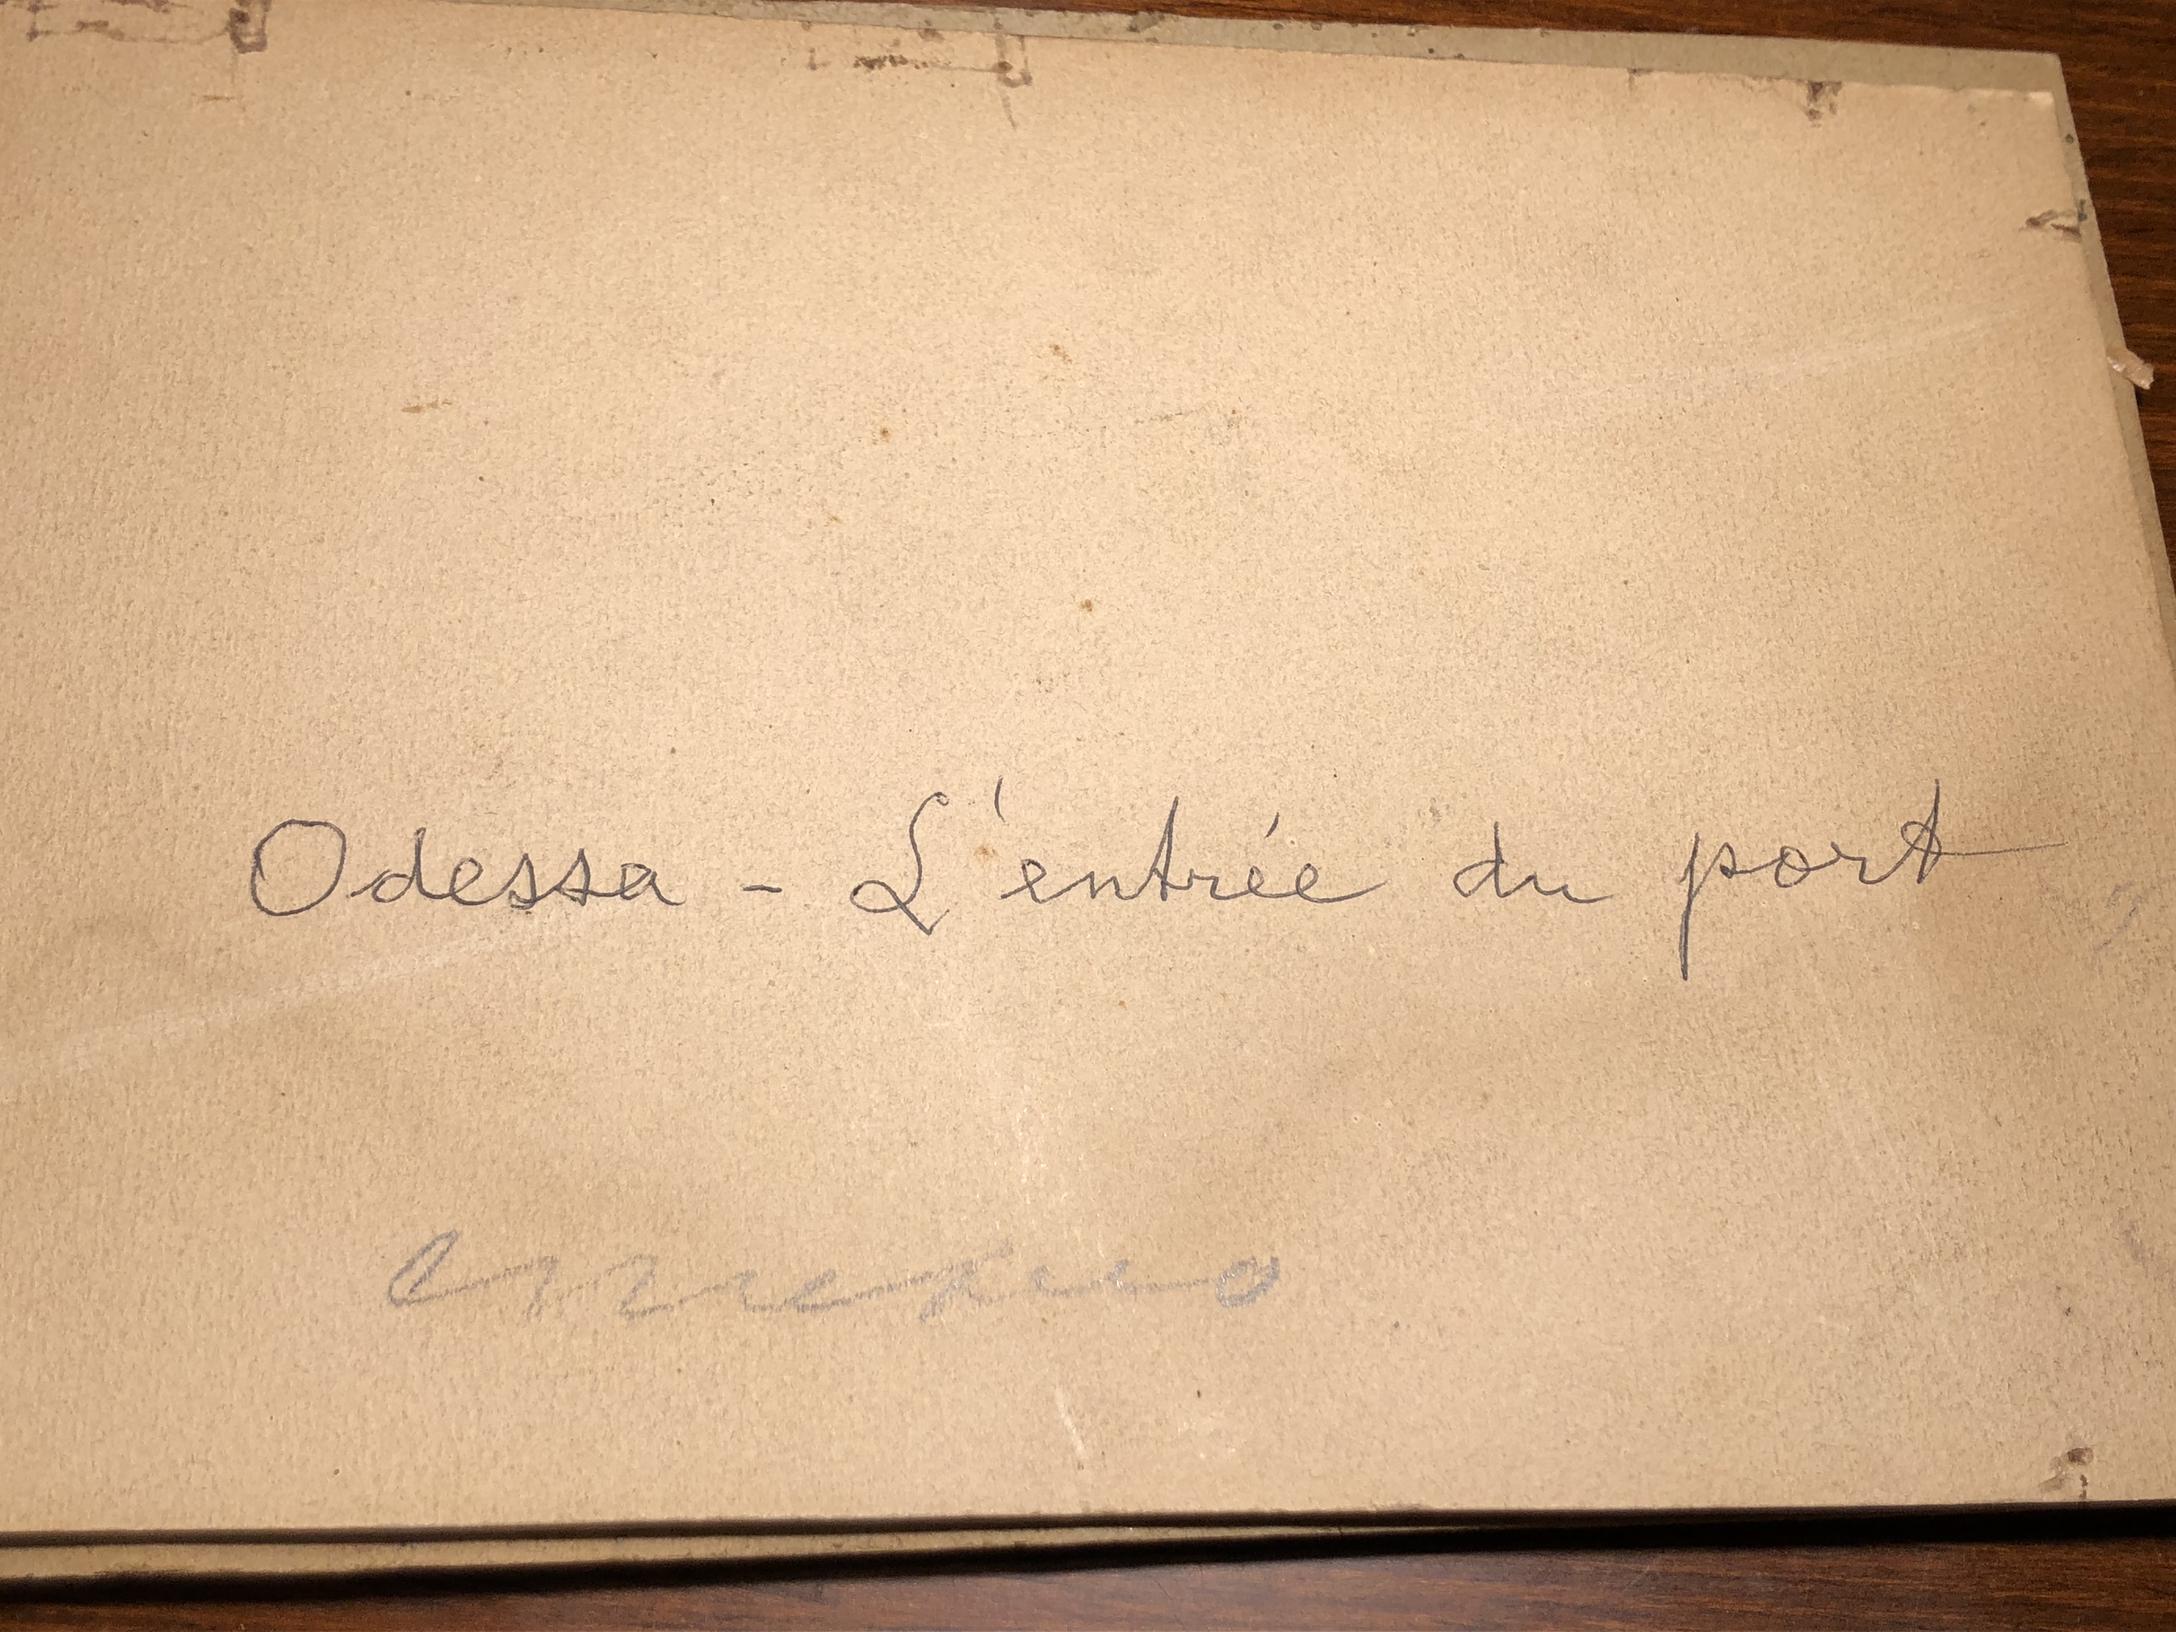 Odessa - L'entrée du port